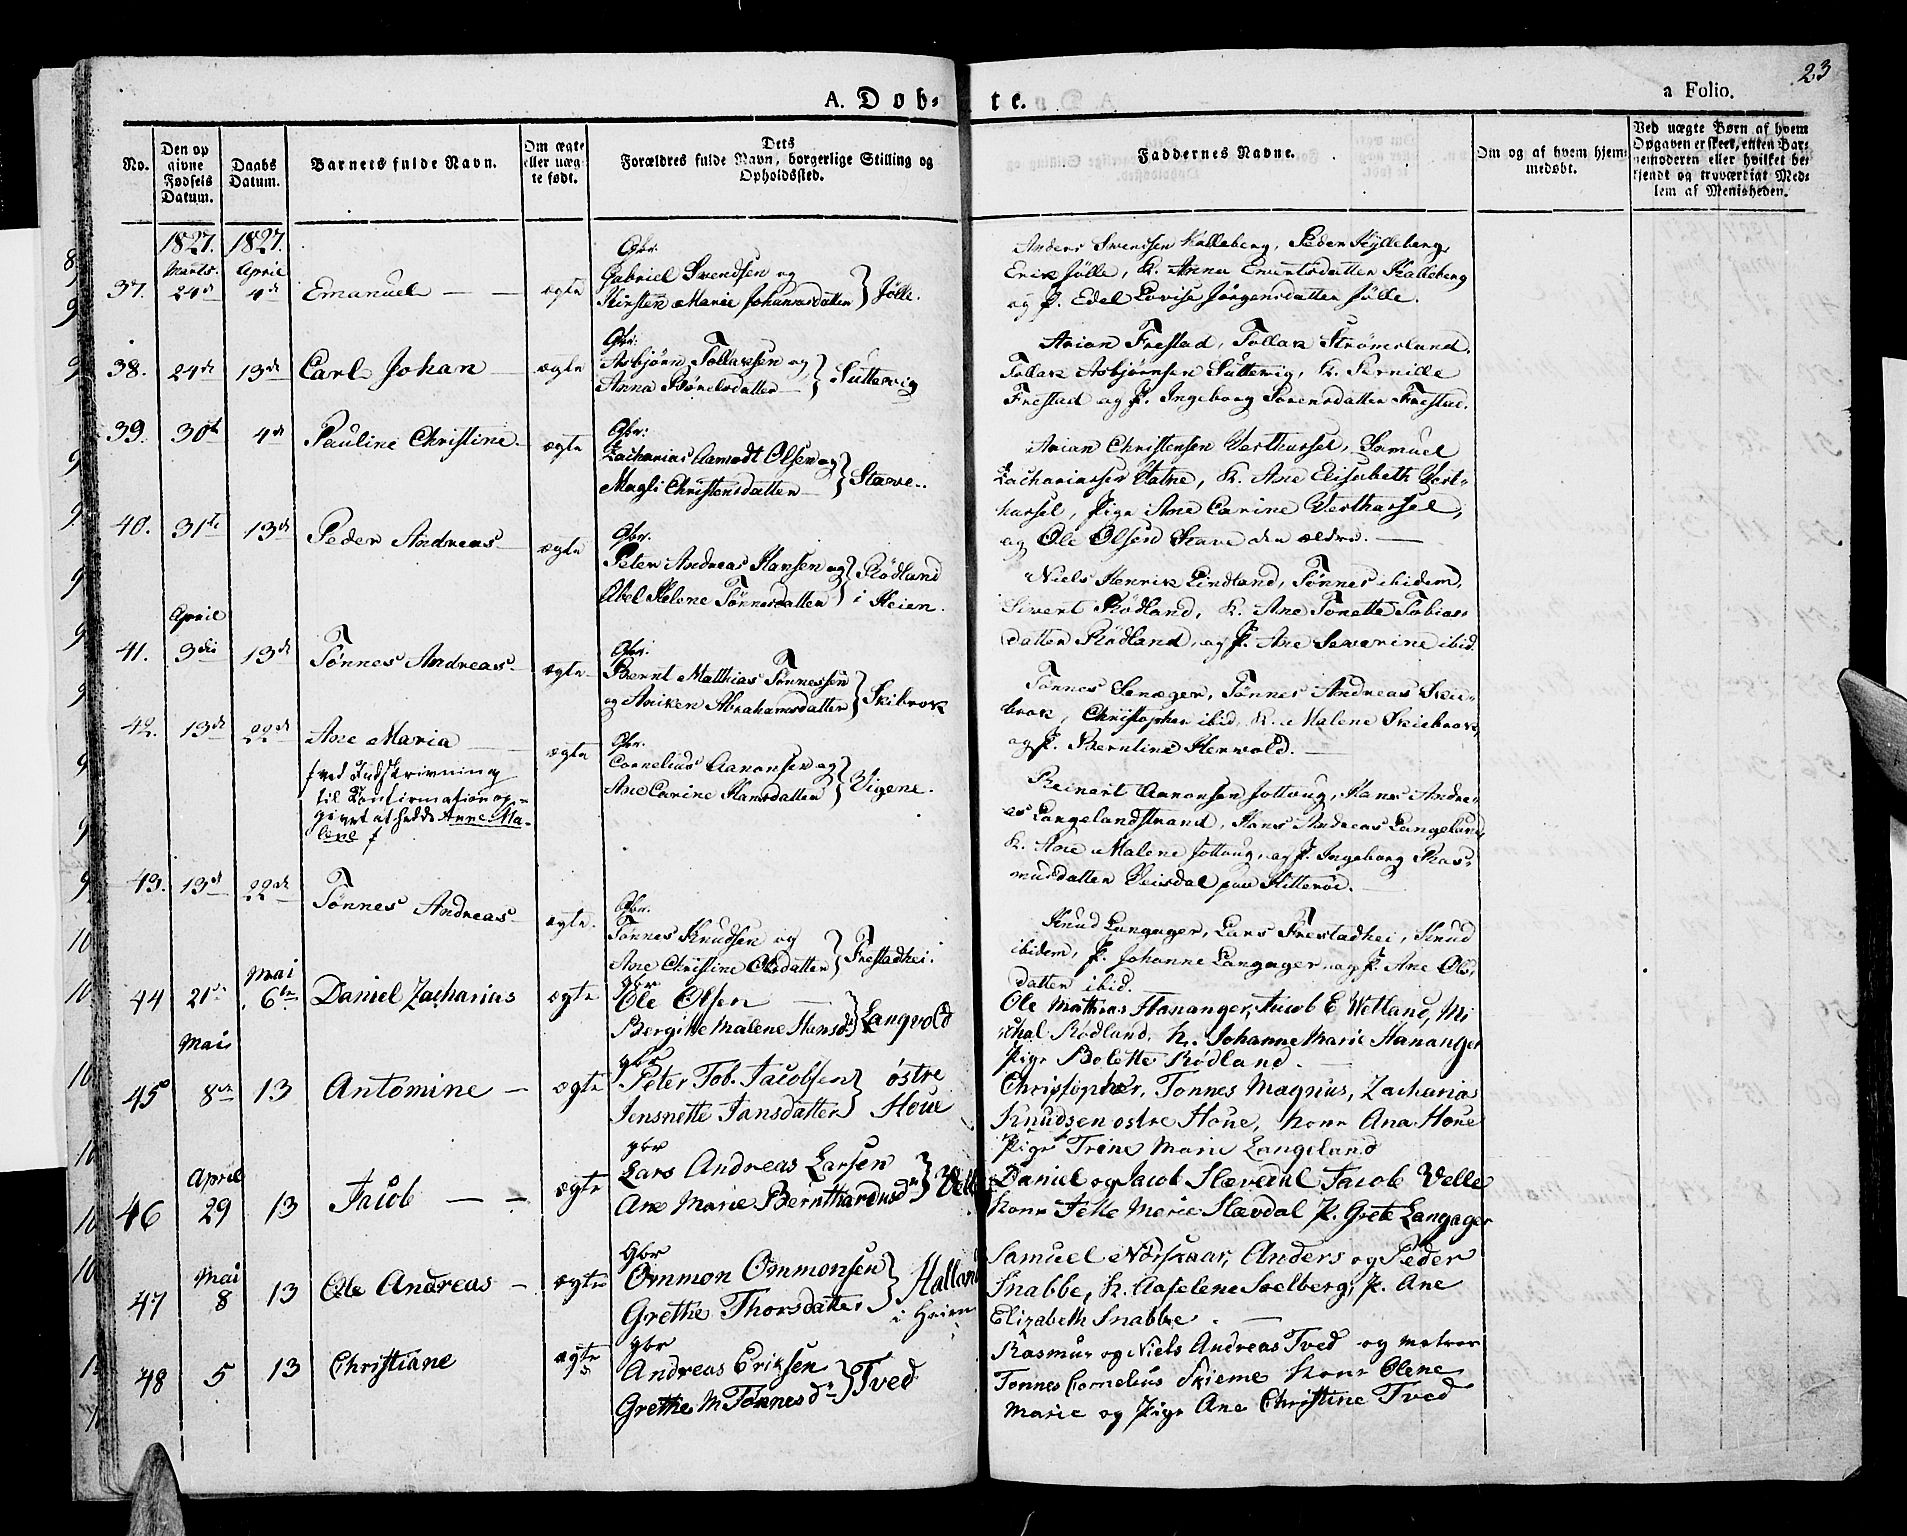 23
A. Døb-te.
a Folio.
No.
Den op
givne
Fødsels
Datum.
Daabs
Datum.
Barnets fulde Navn.
Om ægte
eller uæg-
te født.
Dets
Forældres fulde Navn, borgerlige Stilling og
Opholdssted.
Faddernes Navne.
Om og af hvem hjem-
medøbt.
Ved uægte Børn af hvem
Opgaven er skeet, enten Bar-
nemoderen eller hvilket be-
kjendt og troværdigt Med-
lem af Menigheden.
1827. 1827.
37. Marts. 24de April 4de Emanuel ægte
Gbr.
Gabriel Svendsen og
Kirsten Marie Johannesdatter } Jølle.
Anders Svendsen Kalleberg, Peder Hylleberg,
Erik Jølle, K. Anna Evertsdatter Kalleberg
og P. Edel Lovise Jørgensdatter Jølle.
38. 24de 13de Carl Johan ægte
Gbr.
Asbjørn Tollaksen og
Anna datter } Guttevig
Arian Frestad, Tollak Strømsland,
Tollak Asbjørnsen Guttevig, K. Pernille
Frestad og P. Ingeborg Sorensdatter Frestad.
39. 30te 4de Pauline Christine ægte
Gbr.
Zacharias Aamodt Olsen og
Magli Christensdatter } Stave.
Arian Christensen Vesthassel, Samuel
Zachariassen Hatne, K. Ane Elisabeth Vest-
hassel, Pige Ane Carine Vesthassel,
og Ole Olsen Stave den ældre.
40. 31te 13de Peder Andreas ægte
Gbr.
Peter Andreas Hansen og
Abel Helene Tønnesdatter } Rødland i Heien.
Niels Henrik Lindland, Tønnes ibidem,
Sivert Rødland, K. Ane Tonette Tobias-
datter Rødland, og P. Ane Severine ibid.
41. April 3die 13de Tønnes Andreas ægte
Gbr.
Bernt Matthias Tønnessen
og Aniken Abrahamsdatter } Skibrok
Tønnes Tønnes Andreas Skie-
brok, Christopher ibid, K. Malene Skiebrok,
og P. Berntine Herwold.
42. 13de 22de Ane Maria ægte
ƒ ved Indskrivning
til Konfirmation op-
givet at hedde Anne Ma-
lene ƒ
Gbr.
Cornelius Aanonsen og
Ane Carine Hansdatter } Vigene.
Reinert Aanonsen Jottoug, Hans Andre-
as Langelandstrand, Hans Andreas Langeland,
K. Ane Malene Jottoug, og P. Ingeborg Ras-
musdatter Veisdal paa Hitterøe.
43. 13de 22de Tønnes Andreas ægte.
Gbr.
Tønnes Knudsen og
Ane Christine Olsdatter } Frestadhei.
Knud Langager, Lars Frestadhei, Knud
ibidem, P. Johanne Langager og P. Ane Ols-
datter ibid.
44 21de Mai 6te Daniel Zacharias ægte
gbr
Ole Olsen
Bergitte Malene Hansd. } Langvold
Ole Mathias Hananger, Jacob E Wetland, Mi
chal Rødland, K. Johanne Marie Hananger
Pige Bolette Rødland.
45 Mai 8de 13 Antomine ægte
gbr
Peter Tob. Jacobsen
Jensnette Jansdatter } østre Houe
Christopher, Tonnes Magnus, Zacharias
Knudsen ostre Houe, Kone Ana Houe
Pige Trine Marie Langeland
46 April 29 13 Jacob ægte
gbr
Lars Andreas Larsen
Ane Marie Bernthardusd } Velle
Daniel og Jacob Hævdal Jacob Velle
Kone Marie Hævdal P. Grete Langager
47 Mai 8 13 Ole Andreas ægte
Gbr
Ommon Ommonsen
Grethe Thorsdatter } Halland i Heien
Samuel Nørskaar, Anders og Peder
Snabbe, K. Aaselene Soelberg, P. Ane
Elizabeth Snabbe
48 5 13 Christiane ægte
gbr
Andreas Eriksen
Grethe M Tønnesdr } Tved
Rasmus og Niels Andreas Tved og
Tonnes Cornelius Skieme Kone Olene
Marie og Pige Ane Christine Tved